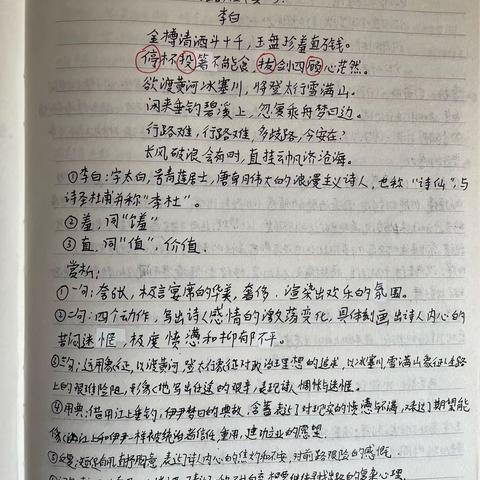 李白
金樽清酒斗十千，玉盘珍羞直万钱。
停杯投箸不能食，拔剑四顾心茫然。
欲渡黄河冰塞川，将登太行雪满山。
闲来垂钓碧溪上，忽复乘舟梦日边。
行路难，行路难，多歧路，今安在？
长风破浪会有时，直挂云帆济沧海。
①李白：字太白，号青莲居士，唐朝伟大的浪漫主义诗人，也称“诗仙”，与
诗圣杜甫并称“李杜”。
②羞，同“馐”
③直，同“值”，价值.
赏析：
①一句：夸张，极言宴席的华美，奢侈，渲染出欢乐的氛围。
②二句：四个动作，写出诗人感情的激荡变化，具体刻画出诗人内心的
苦闷迷惘，极度愤懑和抑郁不平。
③三句：运用象征，以渡黄河，登太行象征对政治理想的追求，以冰塞川，雪满山象征人生路
上的艰难险阻，形象地写出仕途的艰辛，表现诗人惆怅与迷惘。
④用典：借用江上垂钓，伊尹梦日的典故，含蓄表达了对现实的愤懑与不满，表达了期望能
像 和伊尹一样被统治者信任，重用，建功立业的愿望.
⑤反复： 表达诗人内心的焦灼和不安，对前路艰险的感慨.